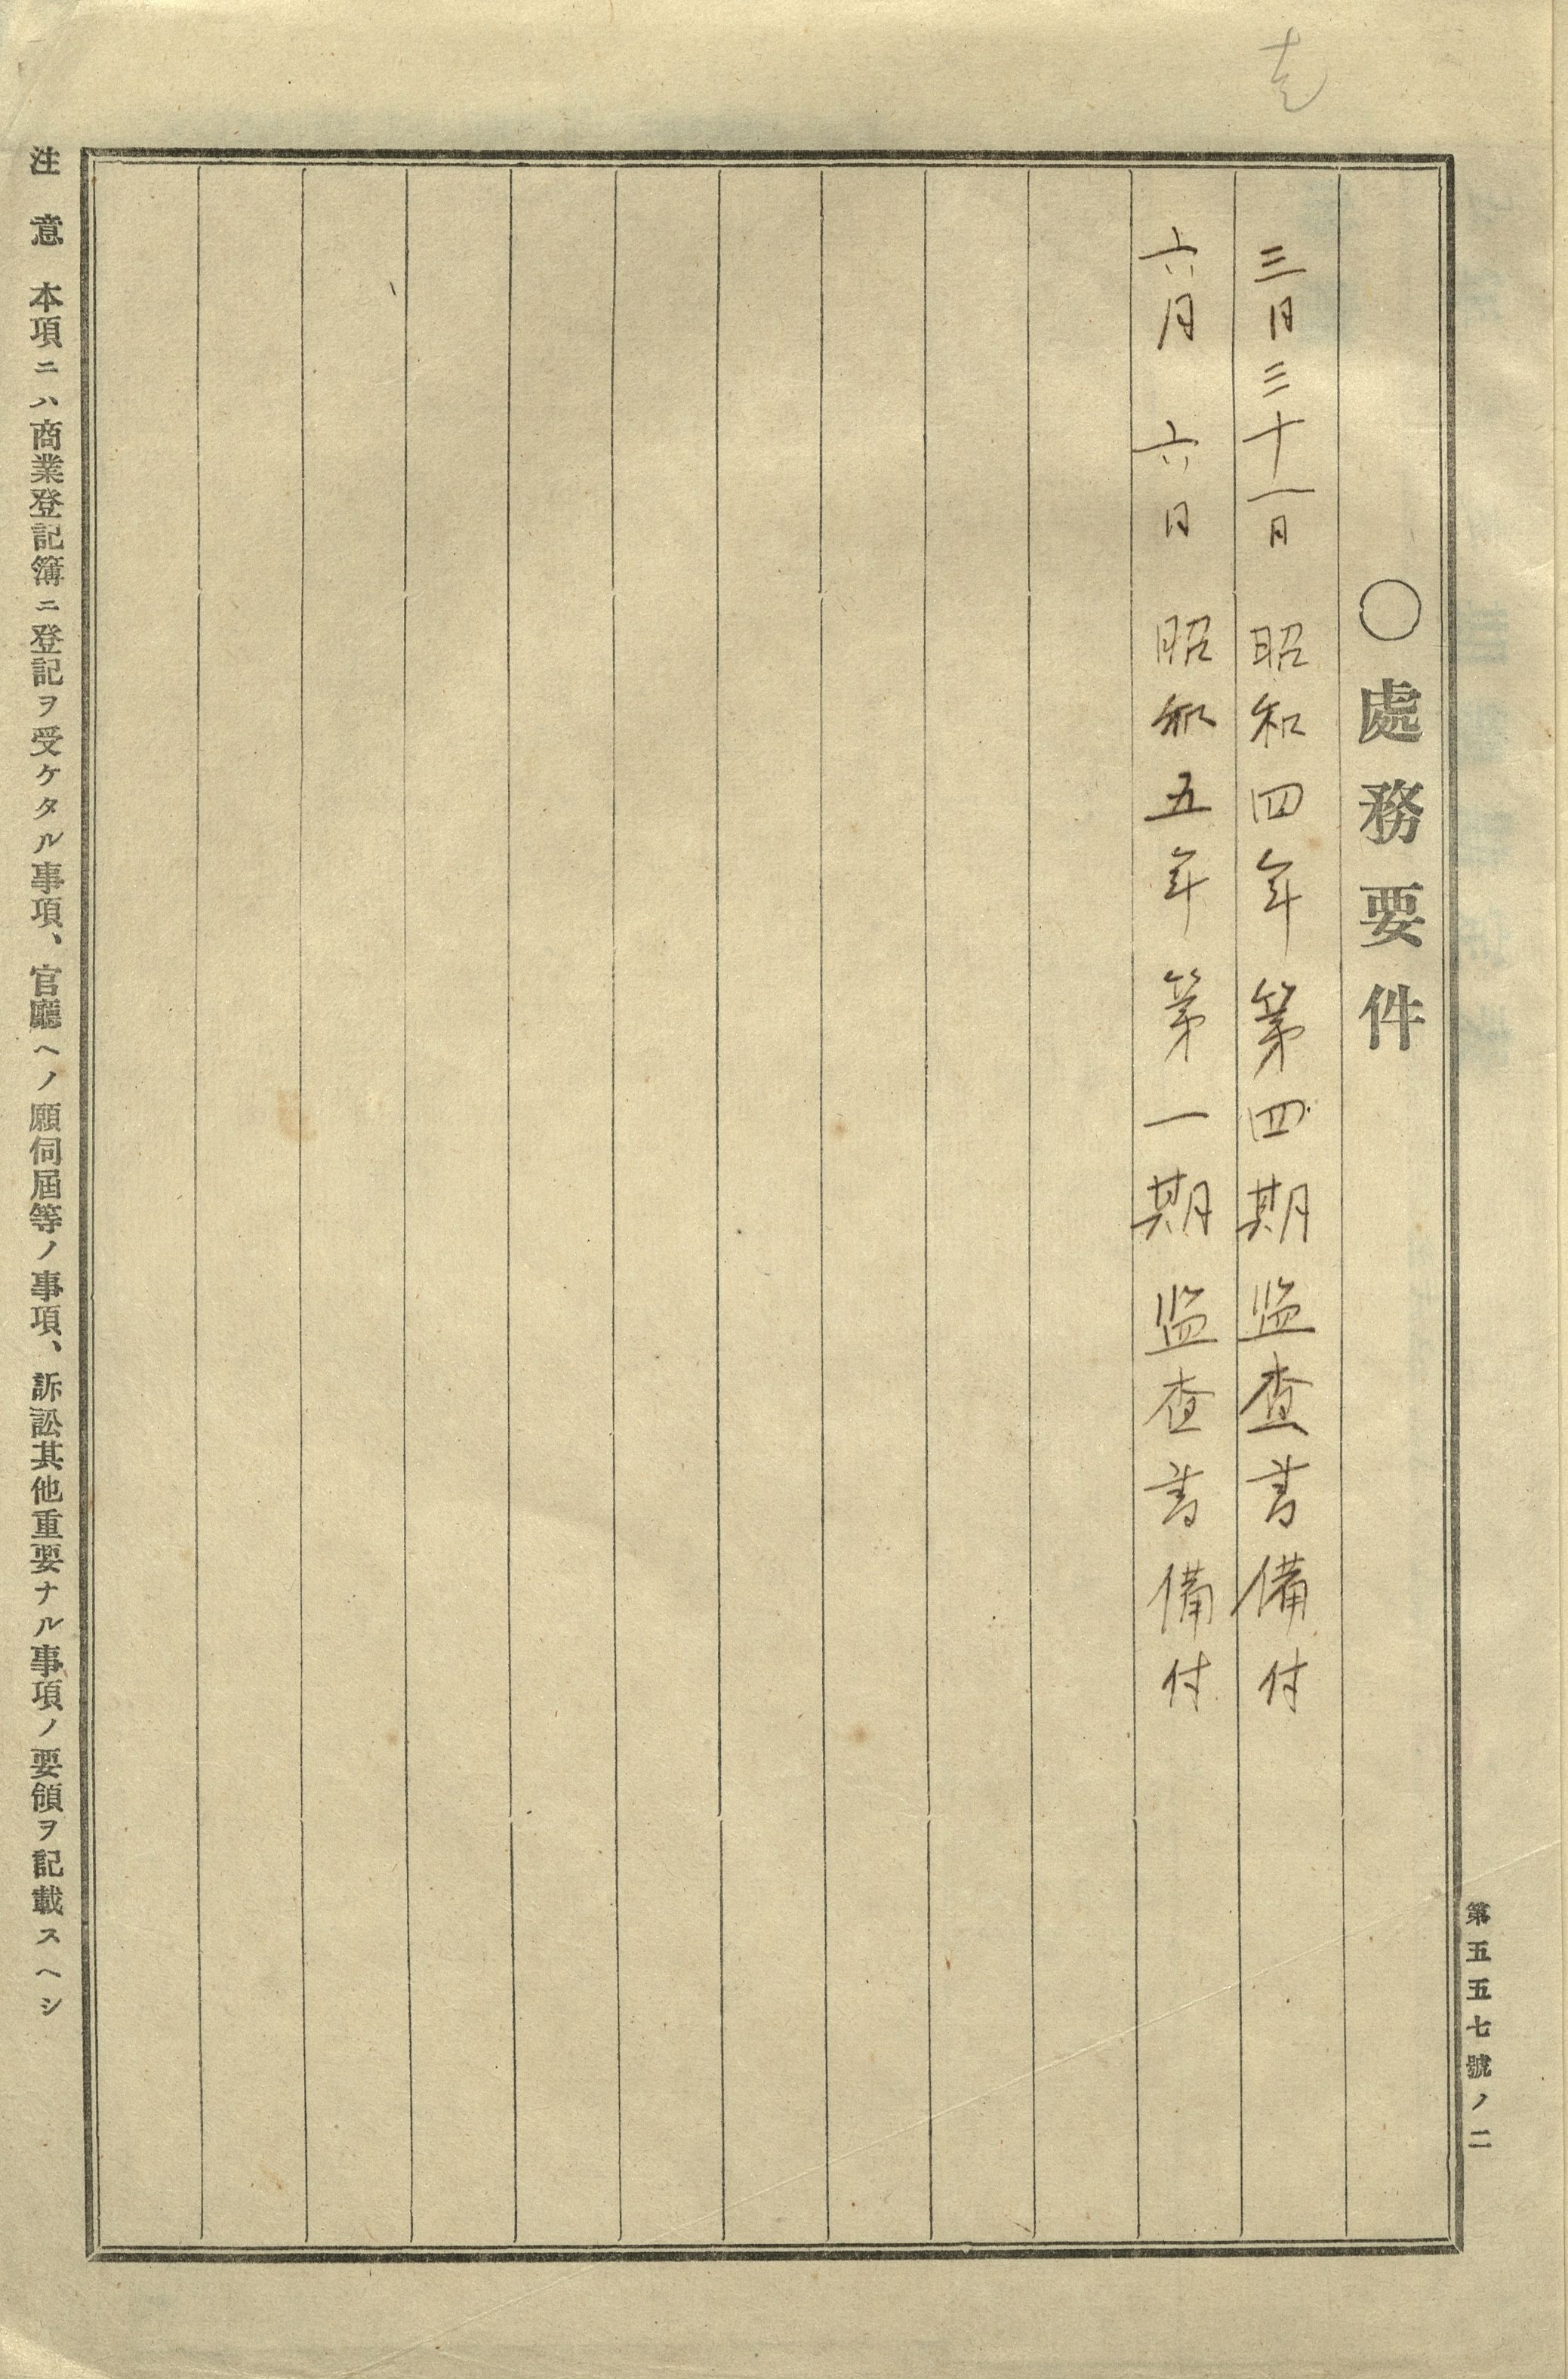 第五五七號ノ二
〇處務要件
三月三十一日 昭和四年第四期監査書備付
六月 六日 昭和五年第一期監査書備付
注 意 本項ニハ商業登記簿ニ登記ヲ受ケタル事項、官廳ヘノ願伺屆等ノ事項、訴訟其他重要ナル事項ノ要領ヲ記載スヘシ